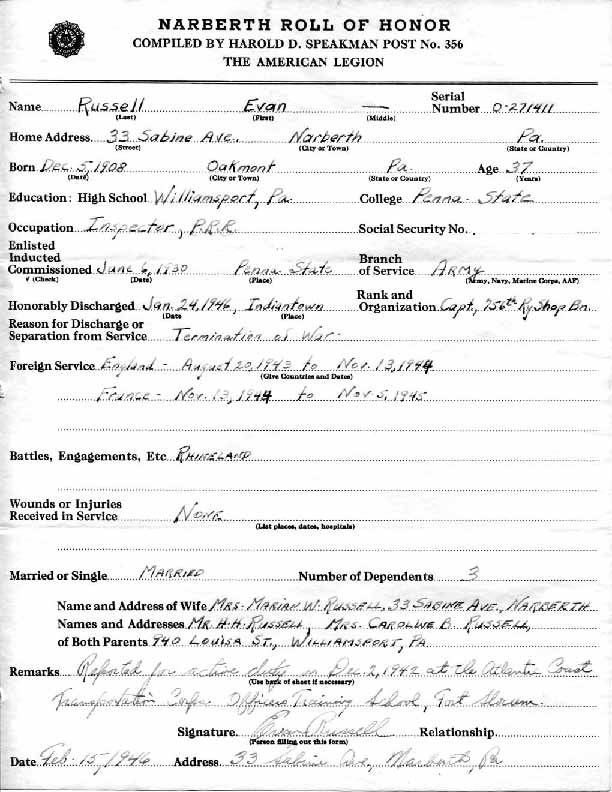 NARBERTH ROLL OF HONOR
COMPILED BY HAROLD D. SPEAKMAN POST No. 356
THE AMERICAN LEGION
Name Russell Evan — Serial Number O-271411
(Last) (First) (Middle)
Home Address 33 Sabine Ave. Narberth Pa.
(Street) (City or Town) (State or Country)
Born Dec. 5, 1908 Oakmont Pa. Age 37
(Date) (City or Town) (State or Country) (Years)
Education: High School Williamsport, Pa. College Penna. State
Occupation Inspector, P.R.R. Social Security No.
Enlisted
Inducted
Commissioned June 6, 1930 Penna State Branch of Service Army
(Check) (Date) (Place) (Army, Navy, Marine Corps, AAF)
Honorably Discharged Jan. 24, 1946, Indiantown Rank and Organization Capt., 756th Ry Shop Bn.
(Date (Place)
Reason for Discharge or
Separation from Service Termination of War.
Foreign Service England - August 20, 1943 to Nov. 13, 1944
(Give Countries and Dates)
France - Nov. 13, 1944 to Nov 5, 1945
Battles, Engagements, Etc Rhineland
Wounds or Injuries
Received in Service None
(List places, dates, hospitals)
Married or Single Married Number of Dependents 3
Name and Address of Wife Mrs. Marian W. Russell, 33 Sabine Ave., Narberth
Names and Addresses Mr. H.H. Russell, Mrs. Caroline B. Russell,
of Both Parents 940 Louisa St., Williamsport, Pa
Remarks Reported for active duty on Dec 2, 1942 at the Atlantic Coast
(Use back of sheet if necessary)
Transportation Corps Officers Training School, Fort Slocum.
Signature Evan Russell Relationship
(Person filling out this form)
Date Feb. 15, 1946 Address 33 Sabine Ave, Narberth, Pa